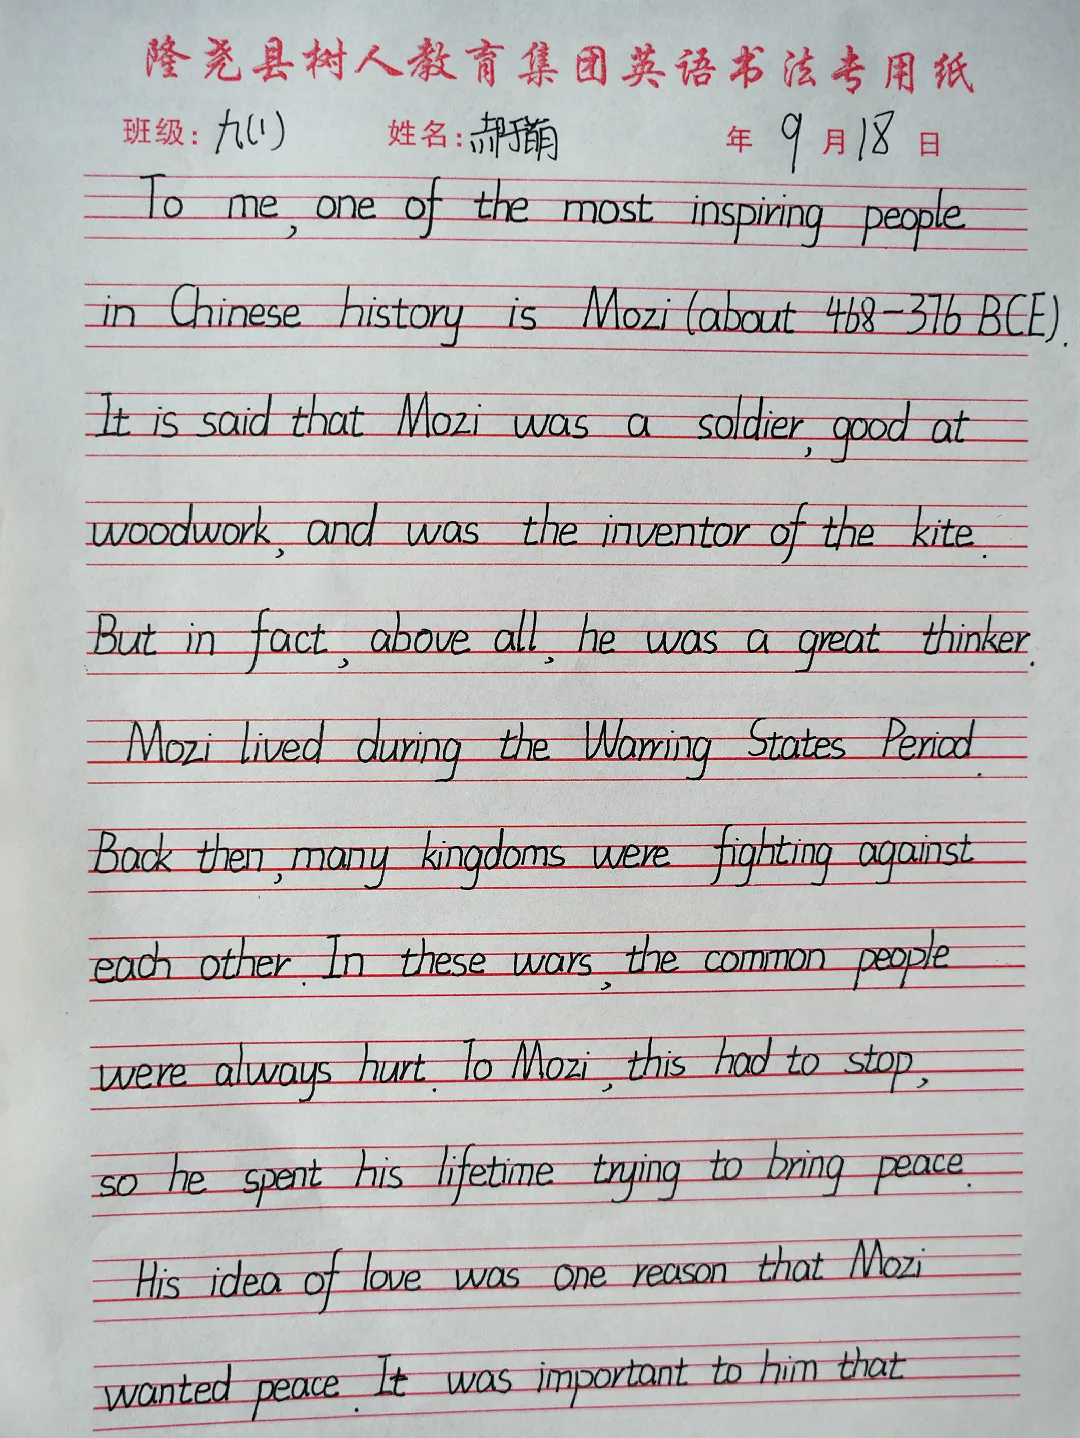 隆尧县树人教育集团英语书法专用纸
班级: 九(1) 姓名: 郝萌 年 9 月 18 日
To me, one of the most inspiring people
in Chinese history is Mozi (about 468-376 BCE).
It is said that Mozi was a soldier, good at
woodwork, and was the inventor of the kite.
But in fact, above all, he was a great thinker.
Mozi lived during the Warring States Period.
Back then, many kingdoms were fighting against
each other. In these wars, the common people
were always hurt. To Mozi, this had to stop,
so he spent his lifetime trying to bring peace.
His idea of love was one reason that Mozi
wanted peace. It was important to him that